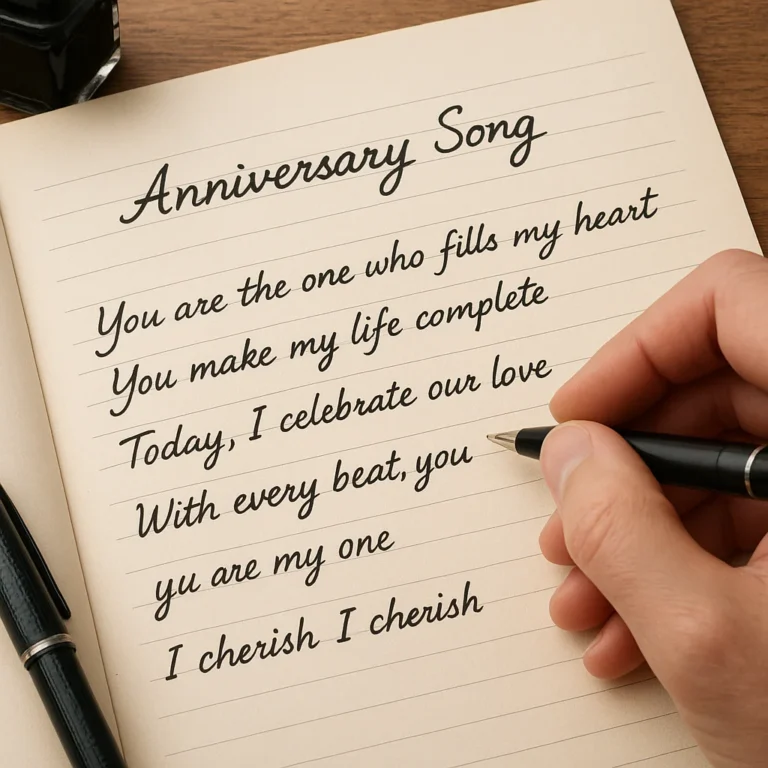 Anniversary Song
You are the one who fills my heart
You make my life complete
Today, I celebrate our love
With every beat, you
yu are my one
I cherish I cherish